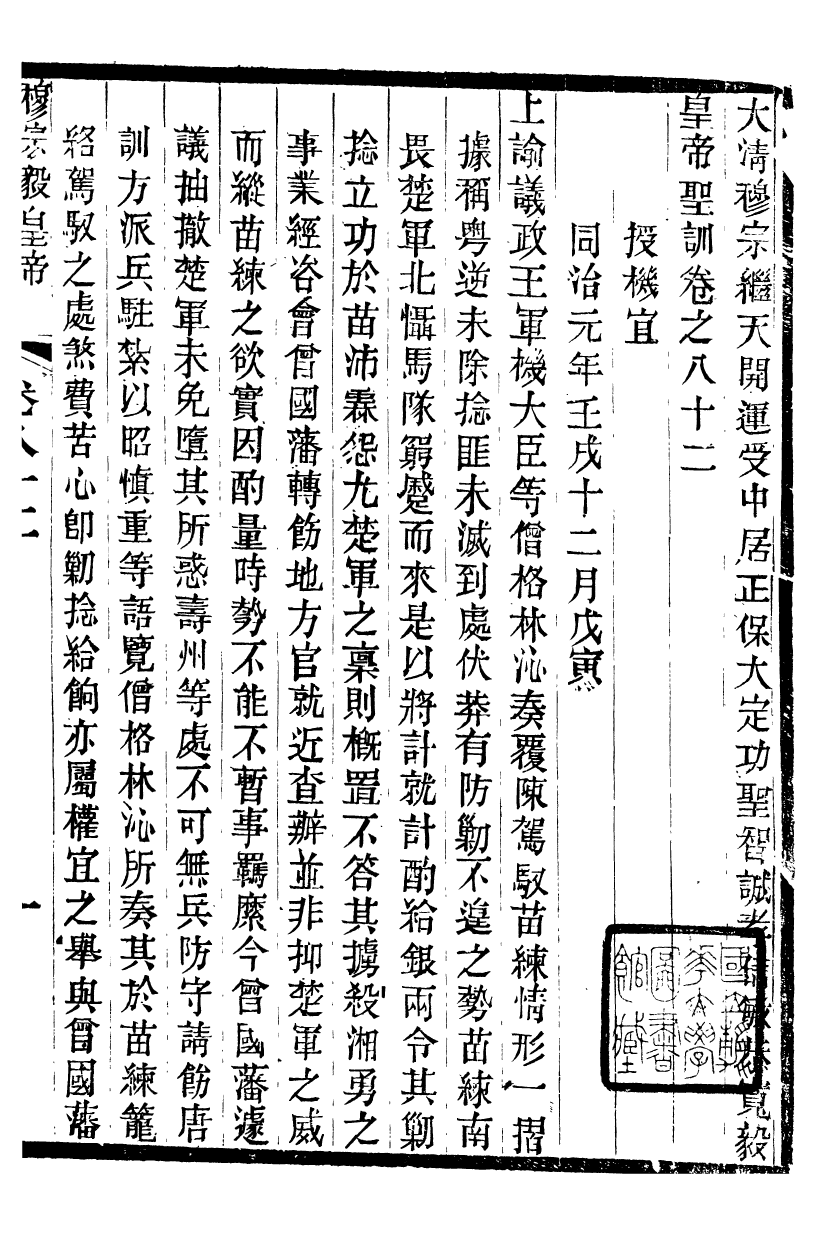 大清穆宗繼天開運受中居正保大定功聖智誠孝信敏恭寬毅
皇帝聖訓卷之八十二
授機宜
同治元年壬戌十二月戊寅
上諭議政王軍機大臣等僧格林沁奏覆陳駕馭苗練情形一摺
據稱粵逆未除捻匪未滅到處伏莽有防勦不遑之勢苗練南
畏楚軍北懾馬隊窮蹙而來是以將計就計酌給銀兩令其勦
捻立功於苗沛霖怨尤楚軍之稟則概置不答其擄殺湘勇之
事業經咨會曾國藩轉飭地方官就近查辦並非抑楚軍之威
而縱苗練之欲實因酌量時勢不能不暫事羈縻今曾國藩遽
議抽撤楚軍未免墮其所惑壽州等處不可無兵防守請飭唐
訓方派兵駐紮以昭慎重等語覽僧格林沁所奏其於苗練籠
絡駕馭之處煞費苦心卽勦捻給餉亦屬權宜之舉與曾國藩
穆宗毅皇帝 卷八十二 一
國立政
大學
圖書
館藏